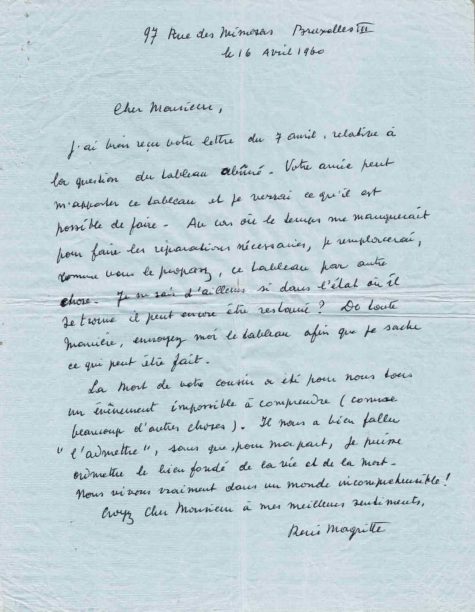 97 Rue des Mimosas Bruxelles III
le 16 Avril 1960
Cher Monsieur,
J'ai bien reçu votre lettre du 7 avril, relative à
la question du tableau abîmé. Votre amie peut
m'apporter ce tableau et je verrai ce qu'il est
possible de faire. Au cas où le temps me manquerait
pour faire les réparations nécessaires, je remplacerai,
comme vous le proposez, ce tableau par autre
chose. Je ne sais d'ailleurs si dans l'état où il
se trouve il peut encore être restauré ? De toute
manière, envoyez moi le tableau afin que je sache
ce qui peut être fait.
La mort de votre cousin a été pour nous tous
un événement impossible à comprendre (comme
beaucoup d'autres choses). Il nous a bien fallu
"l'admettre", sans que, pour ma part, je puisse
admettre le bien fondé de la vie et de la mort.
Nous vivons vraiment dans un monde incompréhensible !
Croyez Cher Monsieur à mes meilleurs sentiments,
René Magritte